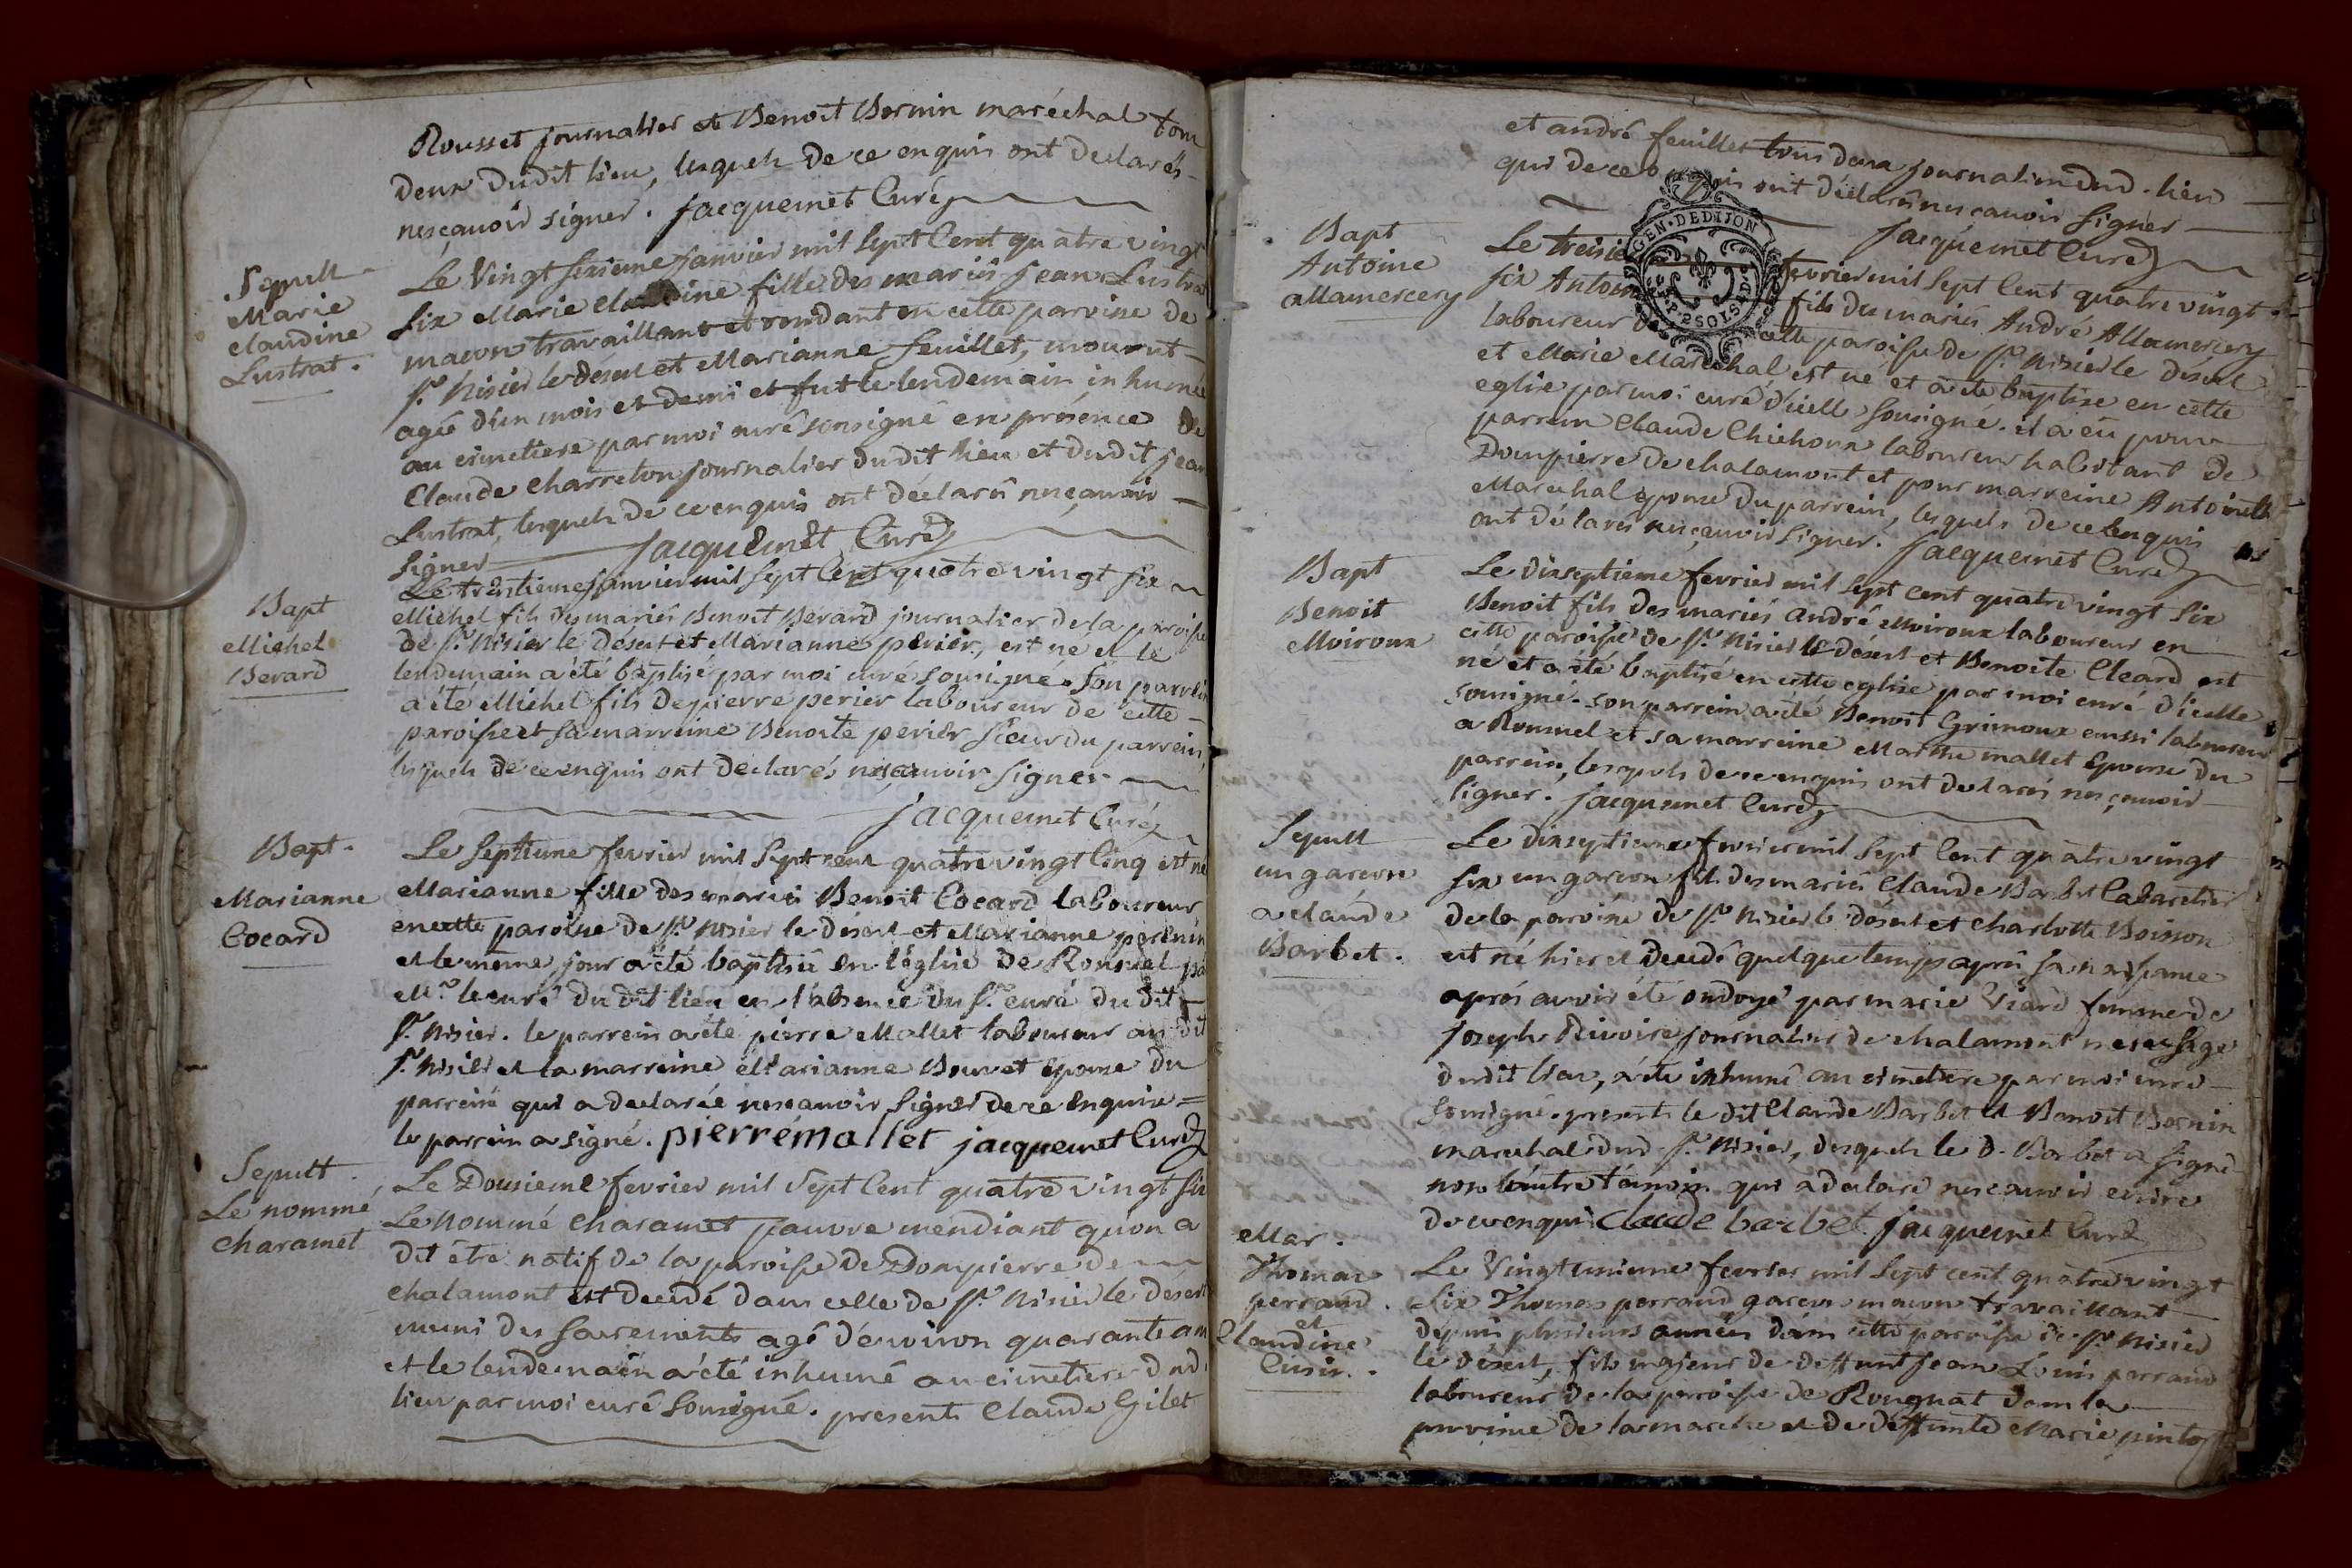 Rousset journalier et Benoit Bornin maréchal tous
deux dudit lieu, lesquels de ce enquis ont déclarés
nesçavoir signer. jacquemet Curé
Sepult
Marie
claudine
Lustrat.
Le Vingt sixieme janvier mil sept Cent quatre vingt
six Marie claudine fille des mariés jean Lustrat
macon travaillant et residant en cette paroisse de
st. Nisier le désert et Marianne feuillet, mourut
agée d'un mois et demi et fut le lendemain inhumée
au cimetiere par moi curé sousigné en présence de
Claude charreton journalier dudit lieu et dudit jean
Lustrat, lesquels de ce enquis ont déclarés nesçavoir
signer jacquemet Curé
Bapt
Michel
Berard
Le trentieme janvier mil sept Cent quatre vingt six
Michel fils des mariés Benoit Berard journalier de la paroisse
de st. Nisier le desert et Marianne perier, est né et le
lendemain a été baptisé par moi curé sousigné. son parrein
a été Michel fils de pierre perier laboureur de cette
paroisse et sa marreine Benoite perier sœur du parrein,
lesquels de ce enquis ont declarés nesçavoir signer
jacquemet Curé
Bapt.
Marianne
Cocard
Le septieme fevrier mil sept cent quatre vingt Cinq est né
Marianne fille des mariés Benoit Cocard laboureur
en cette paroisse de st. Nisier le désert et Marianne perenin
et le même jour a été baptisée en l'église de Ronzuel par
Mr. le curé du dit lieu en l'absence du sr. curé du dit
st. Nisier. le parrein a été pierre Mallet laboureur au dit
st. Nisier et la marreine Marianne Bouvet épouse du
parrein qui a declarée nescavoir signer de ce enquise
le parrein a signé. pierre mallet jacquemet Curé
Sepult
Le nommé
charamet
Le Dousieme fevrier mil sept Cent quatre vingt six
Le nommé charamet pauvre mendiant qu'on a
dit étre natif de la paroisse de Dompierre de
chalamont est decedé dans celle de st. Nisier le desert
muni des sacrements agé d'environ quarante ans
et le lendemain a été inhumé au cimetiere dud.
lieu par moi curé sousigné. presents Claude Gilet
et andré feuillet tous deux journaliers dud. lieu
qui de ce enquis ont déclarés nesçavoir signer
jacquemet Curé
GEN. DE DIJON
Bapt
Antoine
allamercery
Le treisie fevrier mil sept Cent quatre vingt
six Antoin fils des mariés André Allamercery
laboureur de cette paroisse de st. Nisier le désert
et Marie Maréchal est né et a été baptisé en cette
eglise par moi curé d'icelle sousigné. il a eu pour
parrein Claude Chichoux laboureur habitant de
Dompierre de chalamont et pour marreine Antoinette
Marechal épouse du parrein, lesquels de ce enquis
ont déclarés nesçavoir signer. jacquemet Curé
Bapt
Benoit
Moiroux
Le dixseptième fevrier mil sept cent quatre vingt six
Benoit fils des mariés andré Moiroux laboureur en
cette paroisse de st. Nisier le désert et Benoite Cleard est
né et a été baptisé en cette eglise par moi curé d'icelle
sousigné. son parrein a été Benoit Grimoux aussi laboureur
a Ronzuel et sa marreine Marthe mallet épouse du
parrein, lesquels de ce enquis ont declarés nesçavoir
signer. jacquemet Curé
Sepult
un garcon
a claude
Barbet.
Le dixseptieme fevrier mil sept Cent quatre vingt
six un garcon fils des mariés Claude Barbet Cabaretier
de la paroisse de st. Nisier le désert et charlotte Boisson
est né hier et decedé quelque temps après sa naissance
après avoir été ondoyé par marie Viard femme de
joseph Rivoire journalier de chalamont
dudit lieu, a été inhumé au cimetiere par moi curé
sousigné. presents le dit Claude Barbet et Benoit Bornin
marechal dud. st. Nisier, desquels le d. Barbet a signé
non l'autre témoin qui a declaré nescavoir ecrire
de ce enquis Claude barbet jacquemet Curé
Mar.
Thomas
perraud.
et
Claudine
Cusin.
Le Vingt unieme fevrier mil sept cent quatre vingt
six Thomas perraud garcon macon travaillant
depuis plusieurs années dans cette paroisse de st. Nisier
le désert, fils majeur de deffunt jean Louis perraud
laboureur de la paroisse de Rougnat dans la
province de la marche et de deffunte Marie pinto